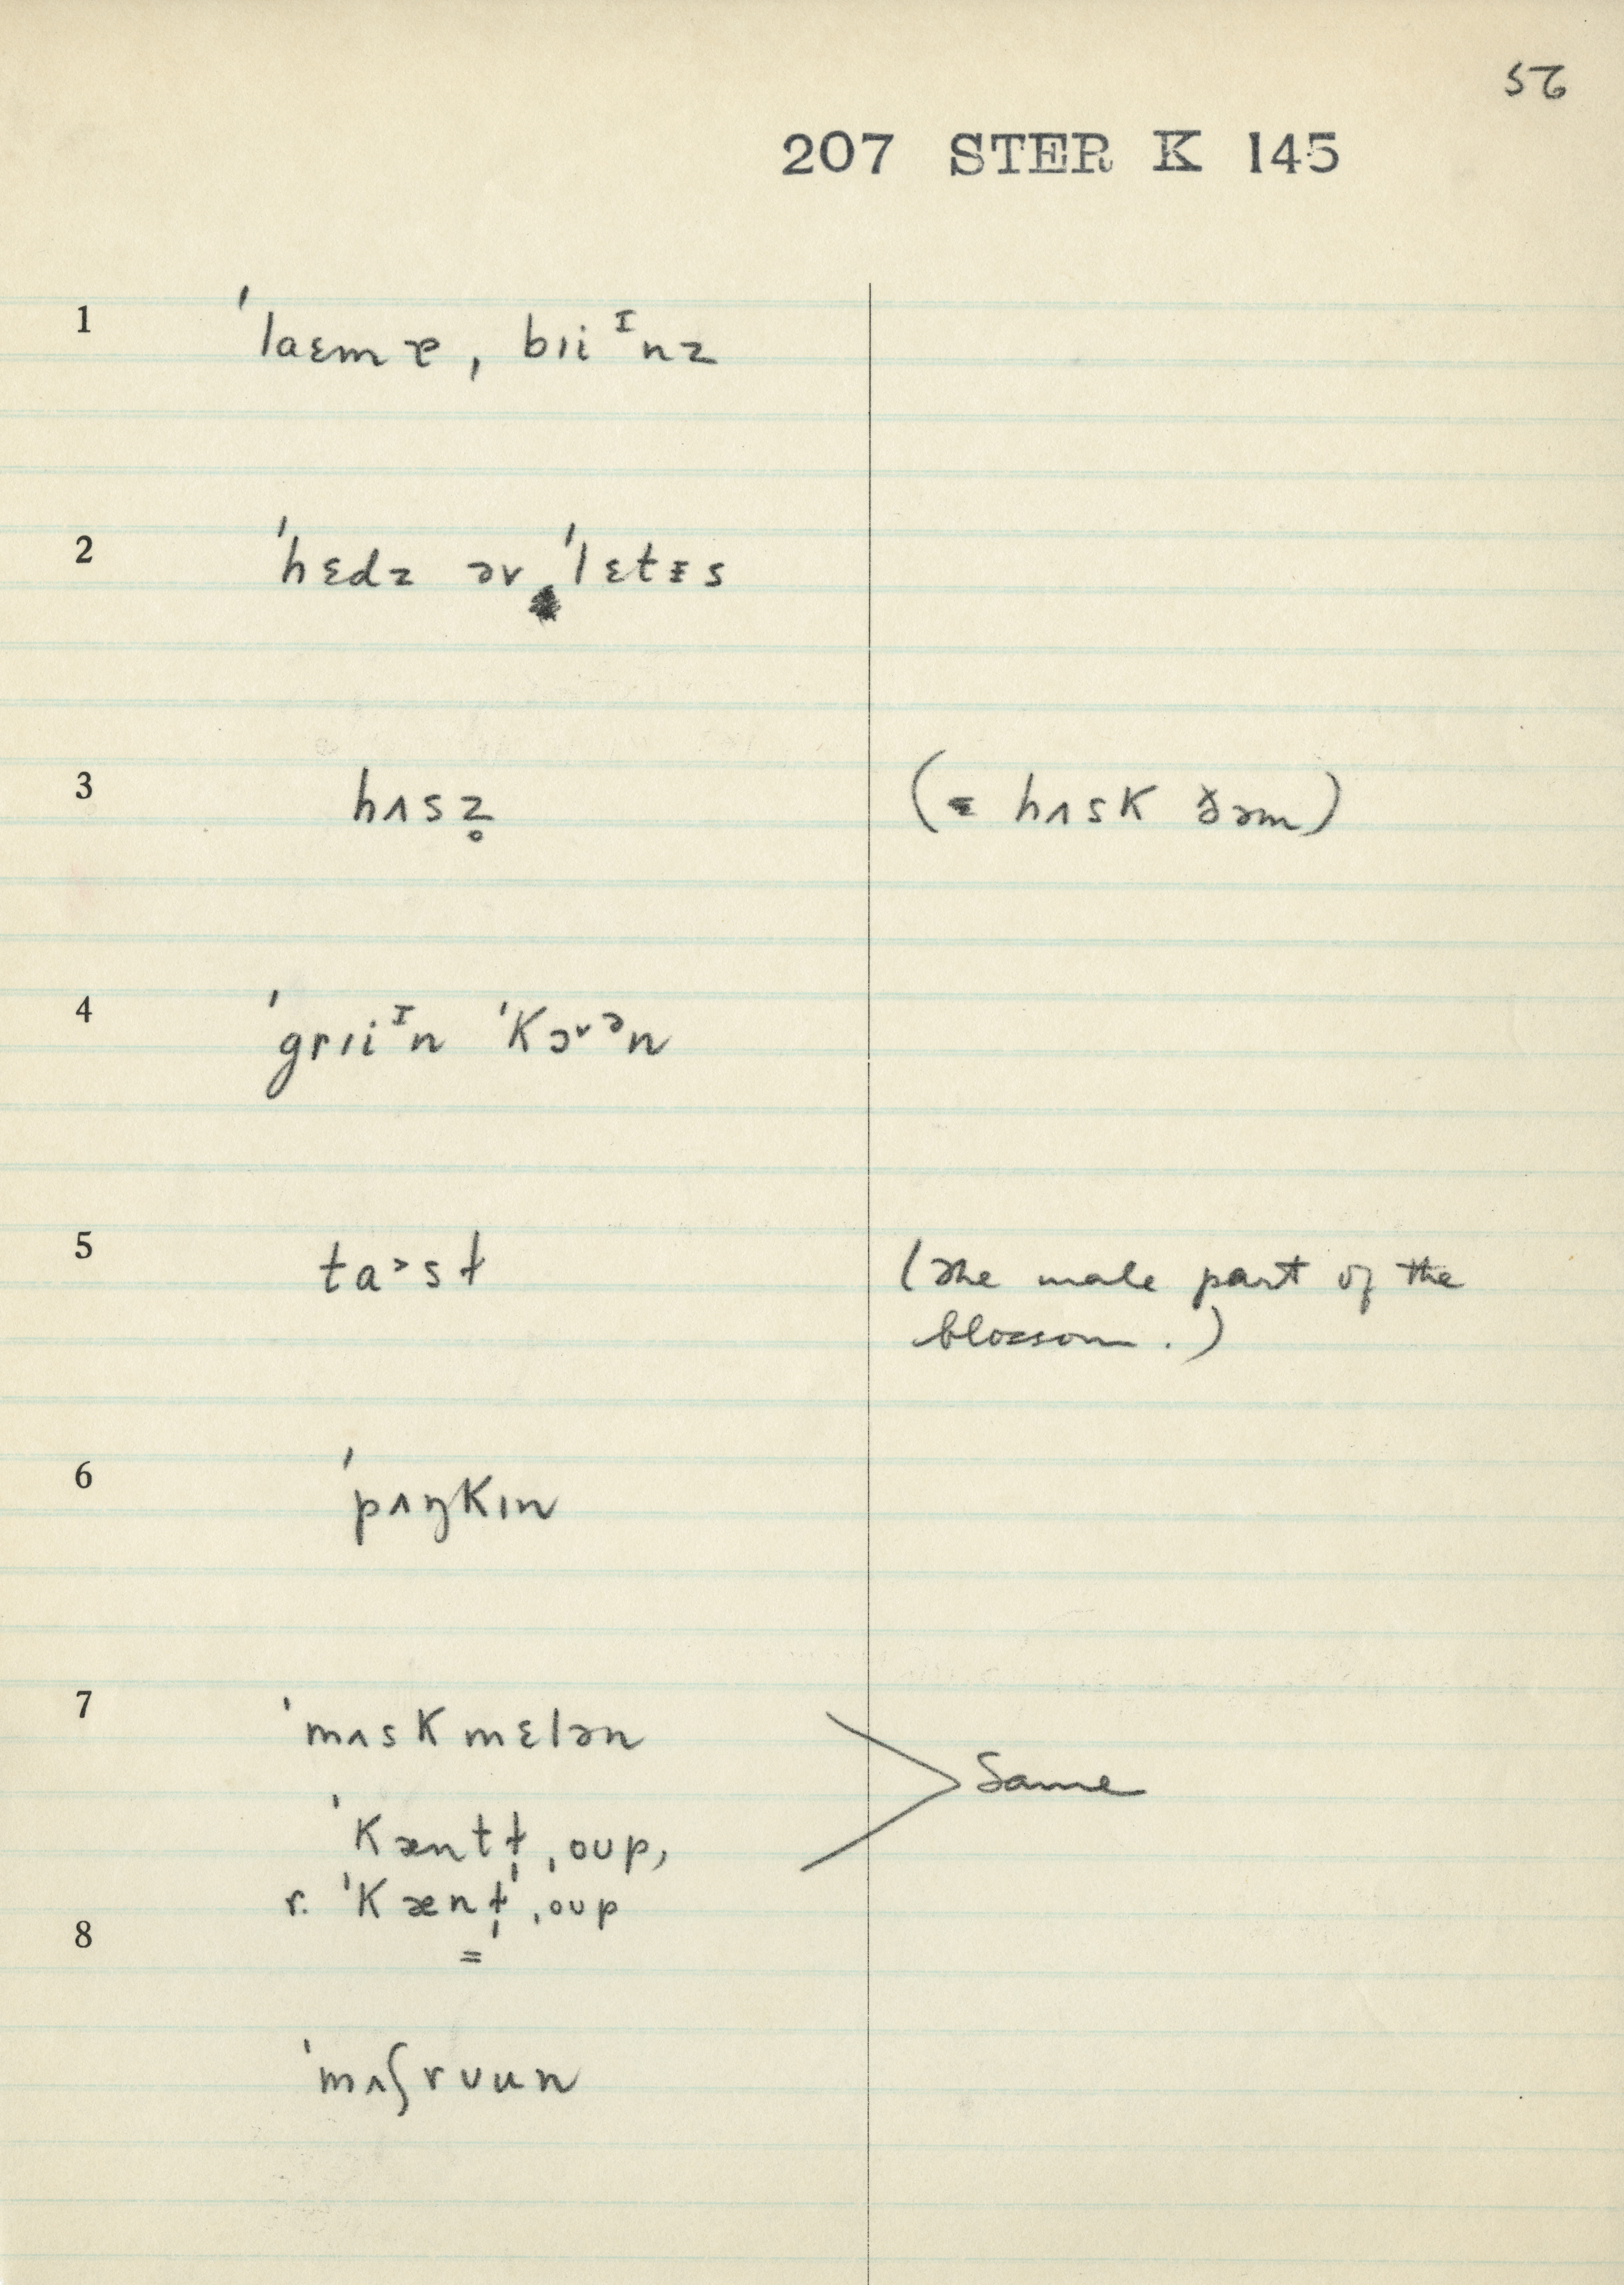 56
207 STER K 145
1 ˈlaɛmɐ, bɪiᶦnz
2 ˈhɛdz əv ˈlɛtᵻs
3 hʌsz̥ (= hʌsk ðəm)
4 ˈgrɪiᶦn ˈkɔ˅ᵊn
5 ta˃sɫ (The male part of the
blossom.)
6 ˈpʌŋkɪn
7 ˈmʌskmɛlən
Same
ˈkæntɫ̩ˌoup,
r. ˈkænɫ̩ˌoup
8
=
ˈmʌʃrʊun